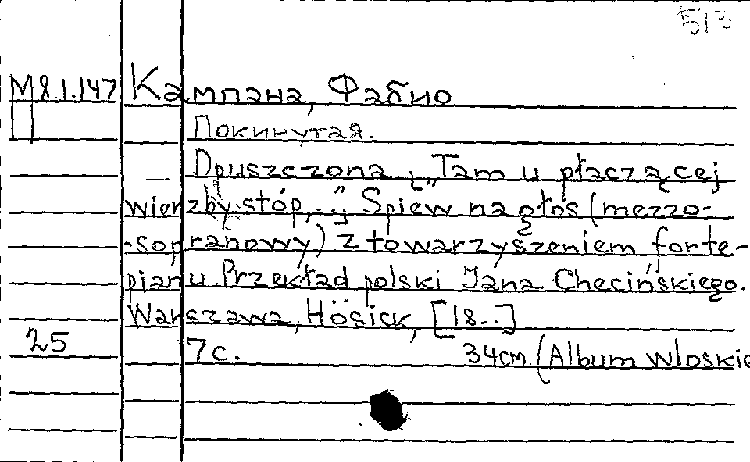 513
М 8.1.147 Кампана, Фабио
П
Покинутая.
Opuszczona „Tam u płaczącej
wierzby stóp,..." Śpiew na głos (mezzo-
-sopranowy) z towarzyszeniem forte-
pianu Przekład polski Jana Chęcińskiego.
Warszawa, Hösick, [18..]
25 7с. 34cm (Album włoskie